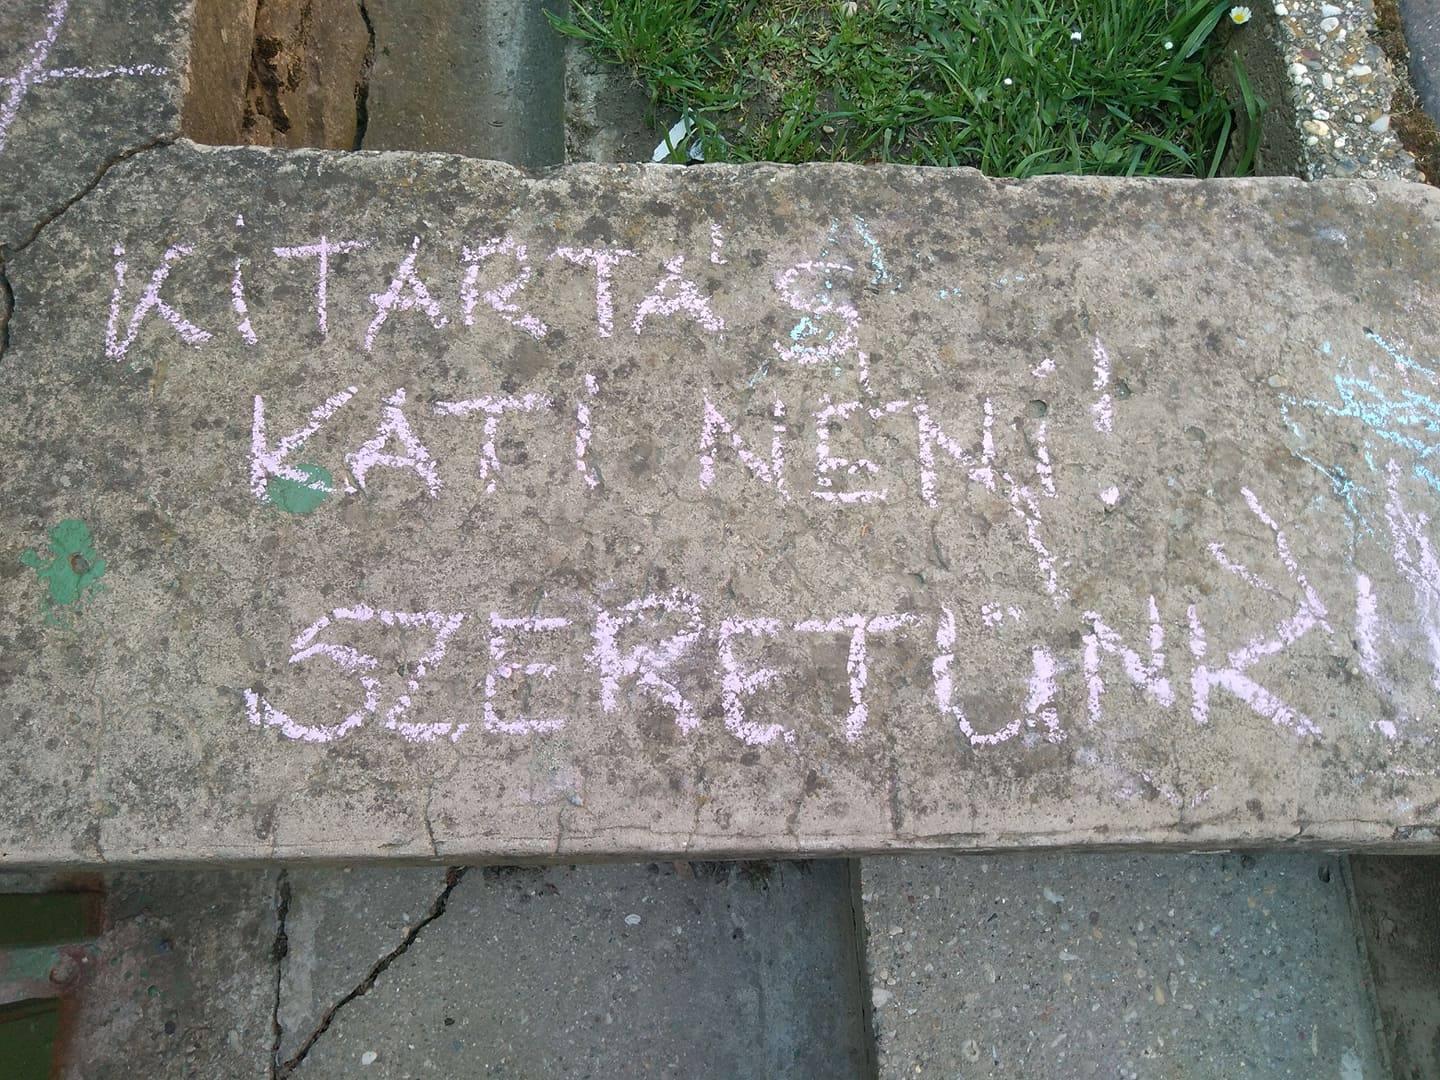 KITARTÁS
KATI NÉNI!
SZERETÜNK!